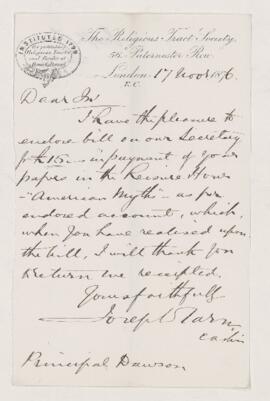 INSTITUTED 1799
The Religious Tract Society,
56, Paternoster Row,
London 17 Nov 1876
E.C.
Dear Sir
I have the pleasure to
endorse bill on our Secretary
for £15 - in payment of your
papers in the Leisure Hour
- "American Myths" - as per
endorsed account, which,
when you have realised upon
the bill, I will thank you
return me receipted.
Yours faithfully
Joseph Tarn
Cashier
Principal Dawson